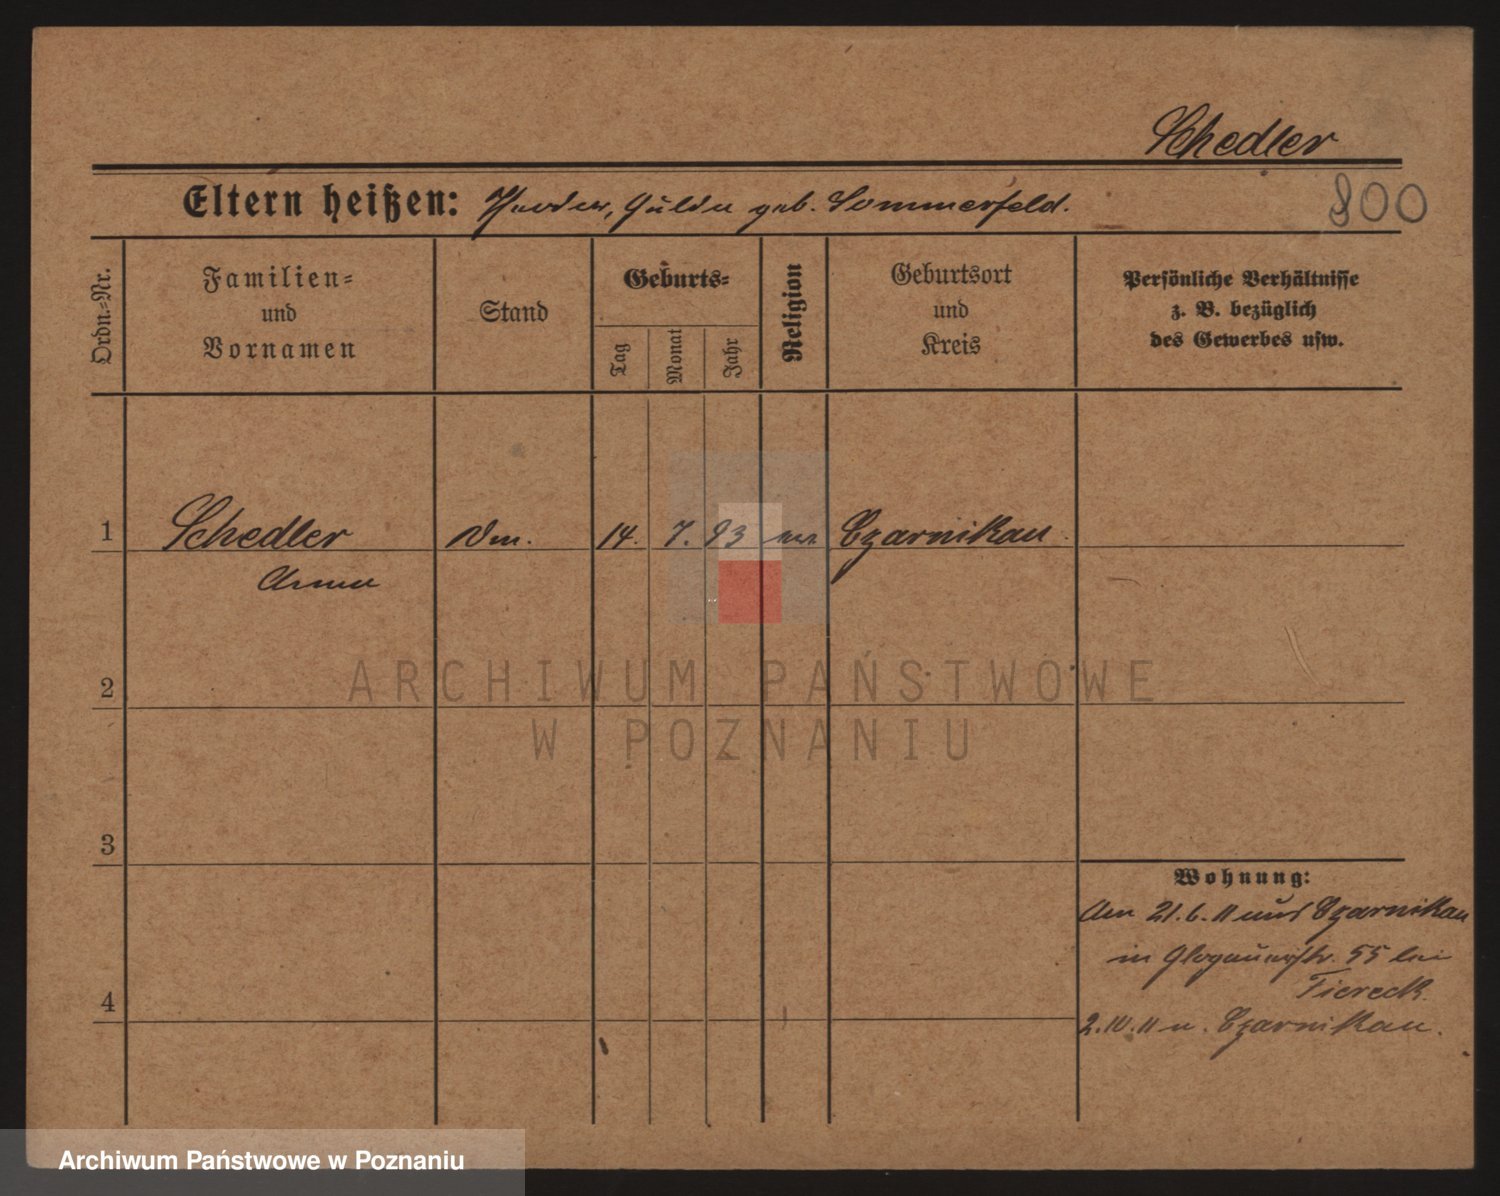 Schedler
Eltern heißen: Theodor, Hulda geb. Sommerfeld.
800
Ordn.=Nr.
Familien=
und
Vornamen
Stand
Geburts=
Tag
Monat
Jahr
Religion
Geburtsort
und
Kreis
Persönliche Verhältnisse
z. B. bezüglich
des Gewerbes usw.
1
Schedler
14. 7. 93
Czarnikau
Anna
2
ARCHIWUM PAŃSTWOWE
W POZNANIU
3
4
Wohnung:
Am 21.6.11 aus Czarnikau
in Glogauerstr. 55 bei
Tiereck.
2.10.11 n. Czarnikau.
Archiwum Państwowe w Poznaniu